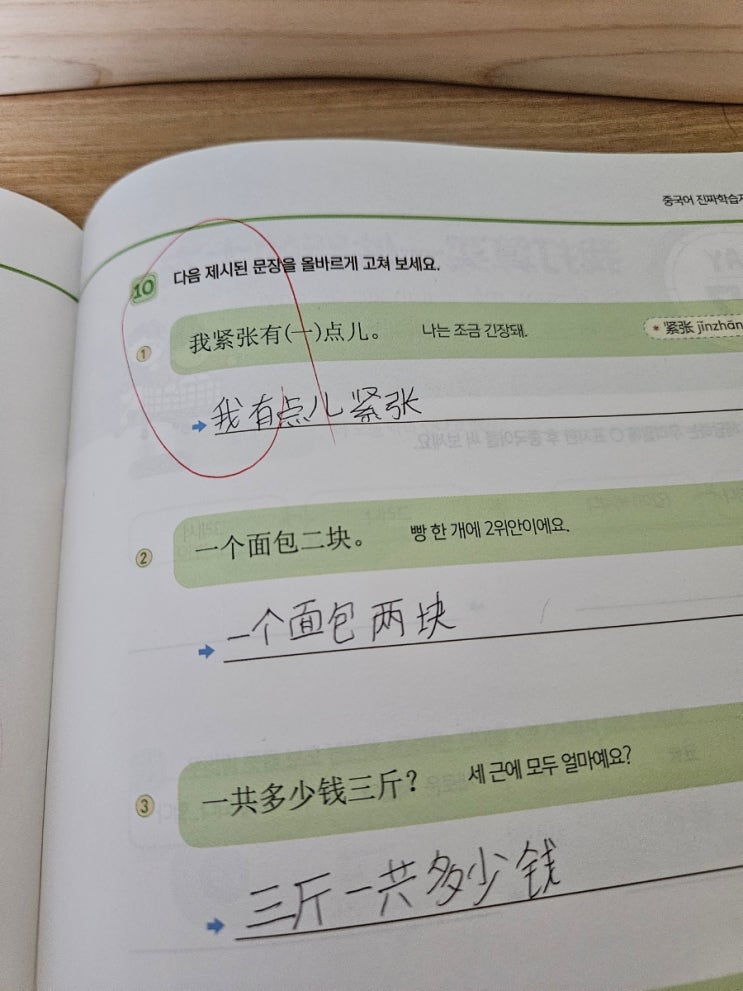 중국어 진짜학습지
10 다음 제시된 문장을 올바르게 고쳐 보세요.
① 我紧张有(一)点儿。 나는 조금 긴장돼. * 紧张 jǐnzhān
➡ 我有点儿紧张
② 一个面包二块。 빵 한 개에 2위안이에요.
➡ 一个面包两块
③ 一共多少钱三斤? 세 근에 모두 얼마예요?
➡ 三斤一共多少钱